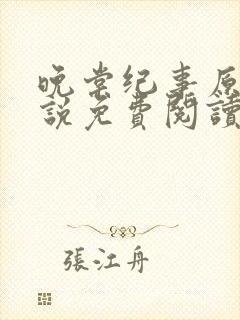 晚棠纪事原
說免費閱讀
張江舟